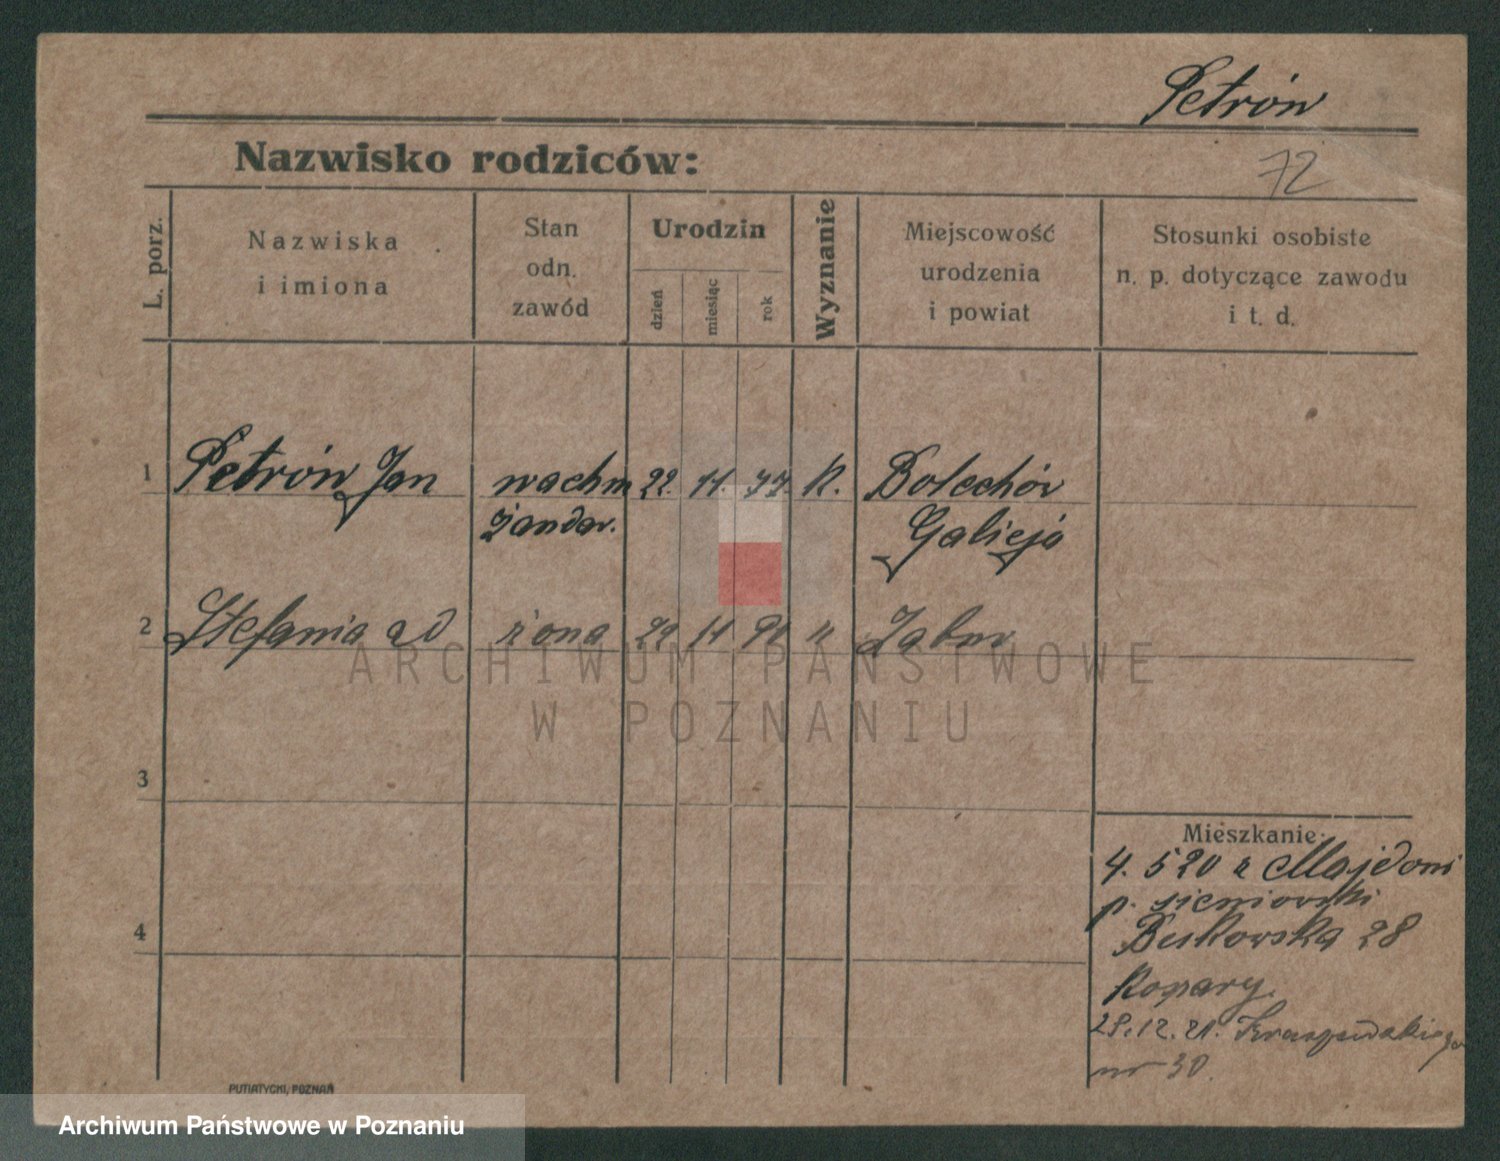 Petrón
72
Nazwisko rodziców:
L. porz.
Nazwiska
i imiona
Stan
odn.
zawód
Urodzin
dzień
miesiąc
rok
Wyznanie
Miejscowość
urodzenia
i powiat
Stosunki osobiste
n. p. dotyczące zawodu
i t. d.
1 Petrón Jan wachm 22. 11. 77. K. Bolechów
żandar. Galicja
2 Stefania ad żona 29 11 90 k
3
4
Mieszkanie:
4. 5 20 z Majdani
p. sieniawski
Bukowska 28
Koszary.
28.12.21. Kraszewskiego
nr 30.
PUTIATYCKI, POZNAŃ
ARCHIWUM PAŃSTWOWE
W POZNANIU
Archiwum Państwowe w Poznaniu